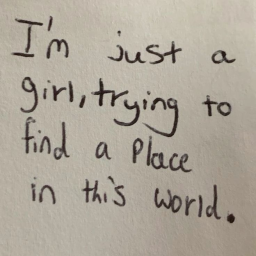 I'm just a
girl, trying to
find a Place
in this world.